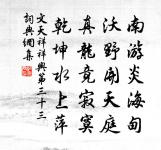 南游炎海甸
沃野開天庭
真龍竟寂寞
乾坤水上萍
文天祥祥興第三十三
詞典網集